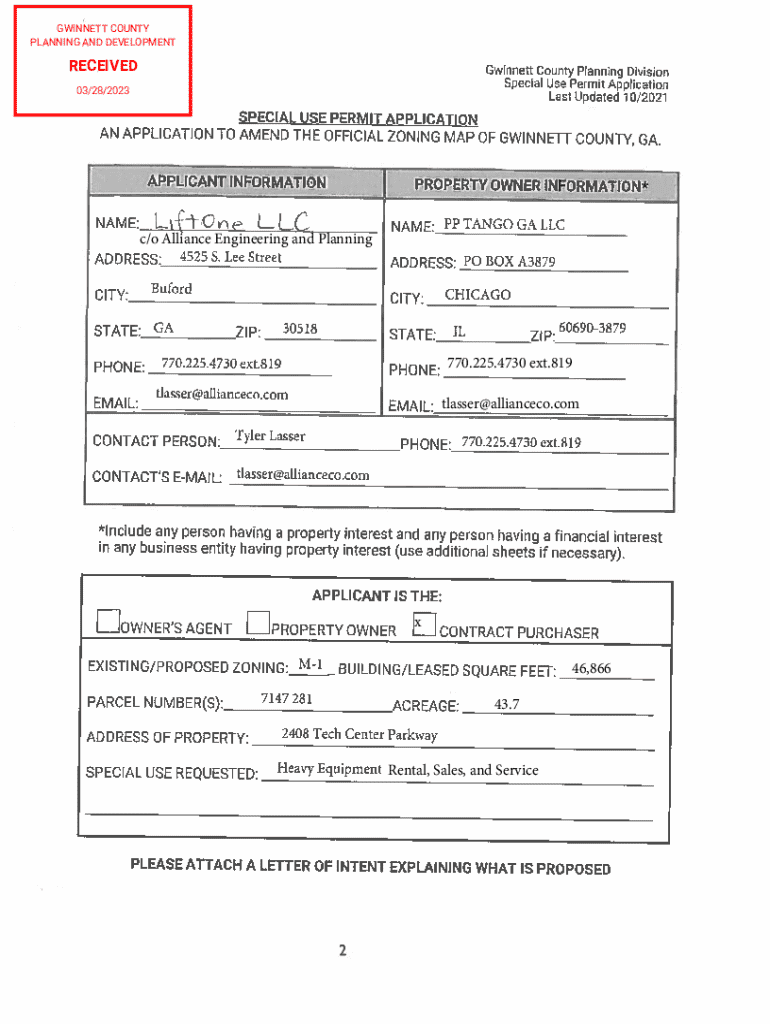 GWINNETT COUNTY
PLANNING AND DEVELOPMENT
RECEIVED
03/28/2023
Gwinnett County Planning Division
Special Use Permit Application
Last Updated 10/2021
SPECIAL USE PERMIT APPLICATION
AN APPLICATION TO AMEND THE OFFICIAL ZONING MAP OF GWINNETT COUNTY, GA.
APPLICANT INFORMATION PROPERTY OWNER INFORMATION*
NAME: LiftOne LLC NAME: PP TANGO GA LLC
c/o Alliance Engineering and Planning
ADDRESS: 4525 S. Lee Street ADDRESS: PO BOX A3879
CITY: Buford CITY: CHICAGO
STATE: GA ZIP: 30518 STATE: IL ZIP: 60690-3879
PHONE: 770.225.4730 ext.819 PHONE: 770.225.4730 ext.819
EMAIL: tlasser@allianceco.com EMAIL: tlasser@allianceco.com
CONTACT PERSON: Tyler Lasser PHONE: 770.225.4730 ext.819
CONTACT'S E-MAIL: tlasser@allianceco.com
*Include any person having a property interest and any person having a financial interest
in any business entity having property interest (use additional sheets if necessary).
APPLICANT IS THE:
OWNER'S AGENT PROPERTY OWNER x CONTRACT PURCHASER
EXISTING/PROPOSED ZONING: M-1 BUILDING/LEASED SQUARE FEET: 46,866
PARCEL NUMBER(S): 7147 281 ACREAGE: 43.7
ADDRESS OF PROPERTY: 2408 Tech Center Parkway
SPECIAL USE REQUESTED: Heavy Equipment Rental, Sales, and Service
PLEASE ATTACH A LETTER OF INTENT EXPLAINING WHAT IS PROPOSED
2